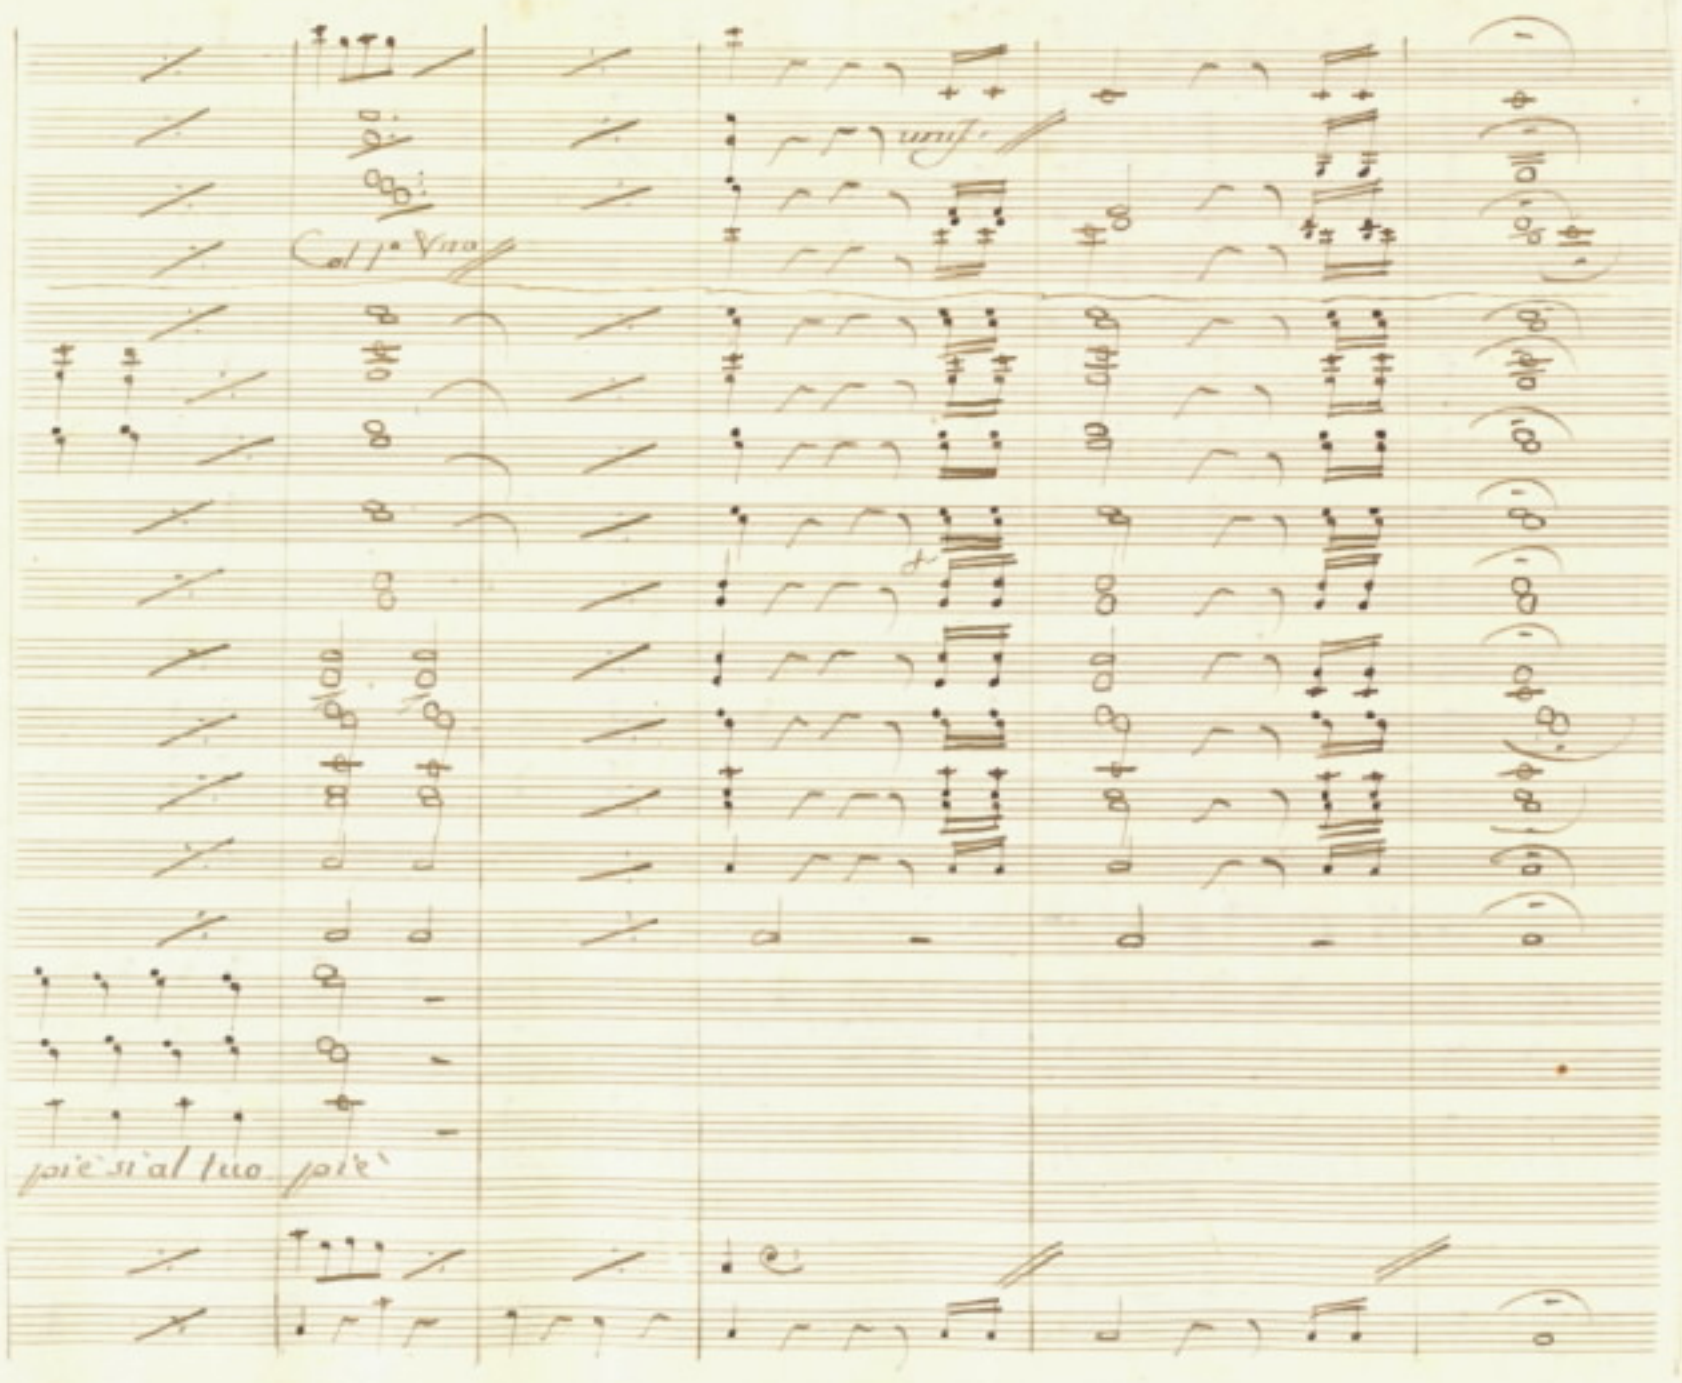 unis.
Col 1º Vno
piè si al tuo piè